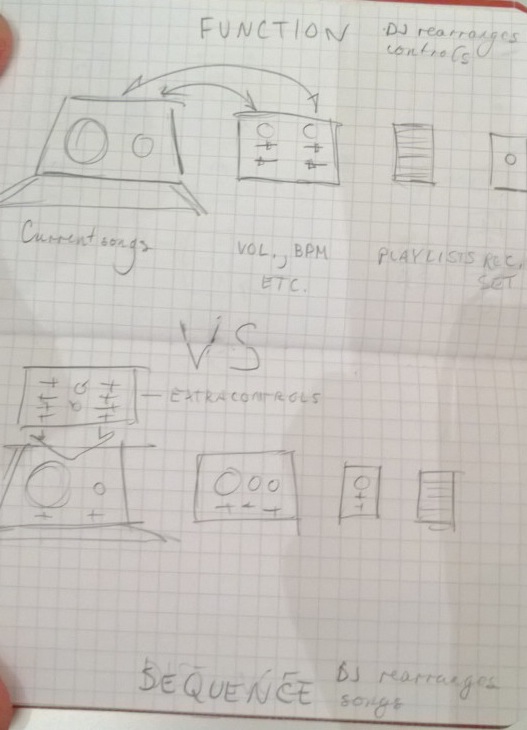 FUNCTION
DJ rearranges
controls
Current songs
VOL., BPM
ETC.
PLAYLISTS
REC.
SET
VS
EXTRA CONTROLS
SEQUENCE
DJ rearranges
songs